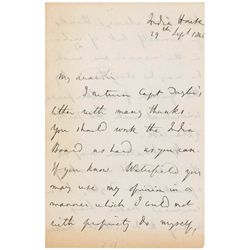 India House
29th Sept 18
My dear
I return Capt Taylor's
letter with many thanks
You should work the India
Board as hard as you can.
If you know Waterfield you
may use my opinion in a
manner which I could not
with propriety do myself,